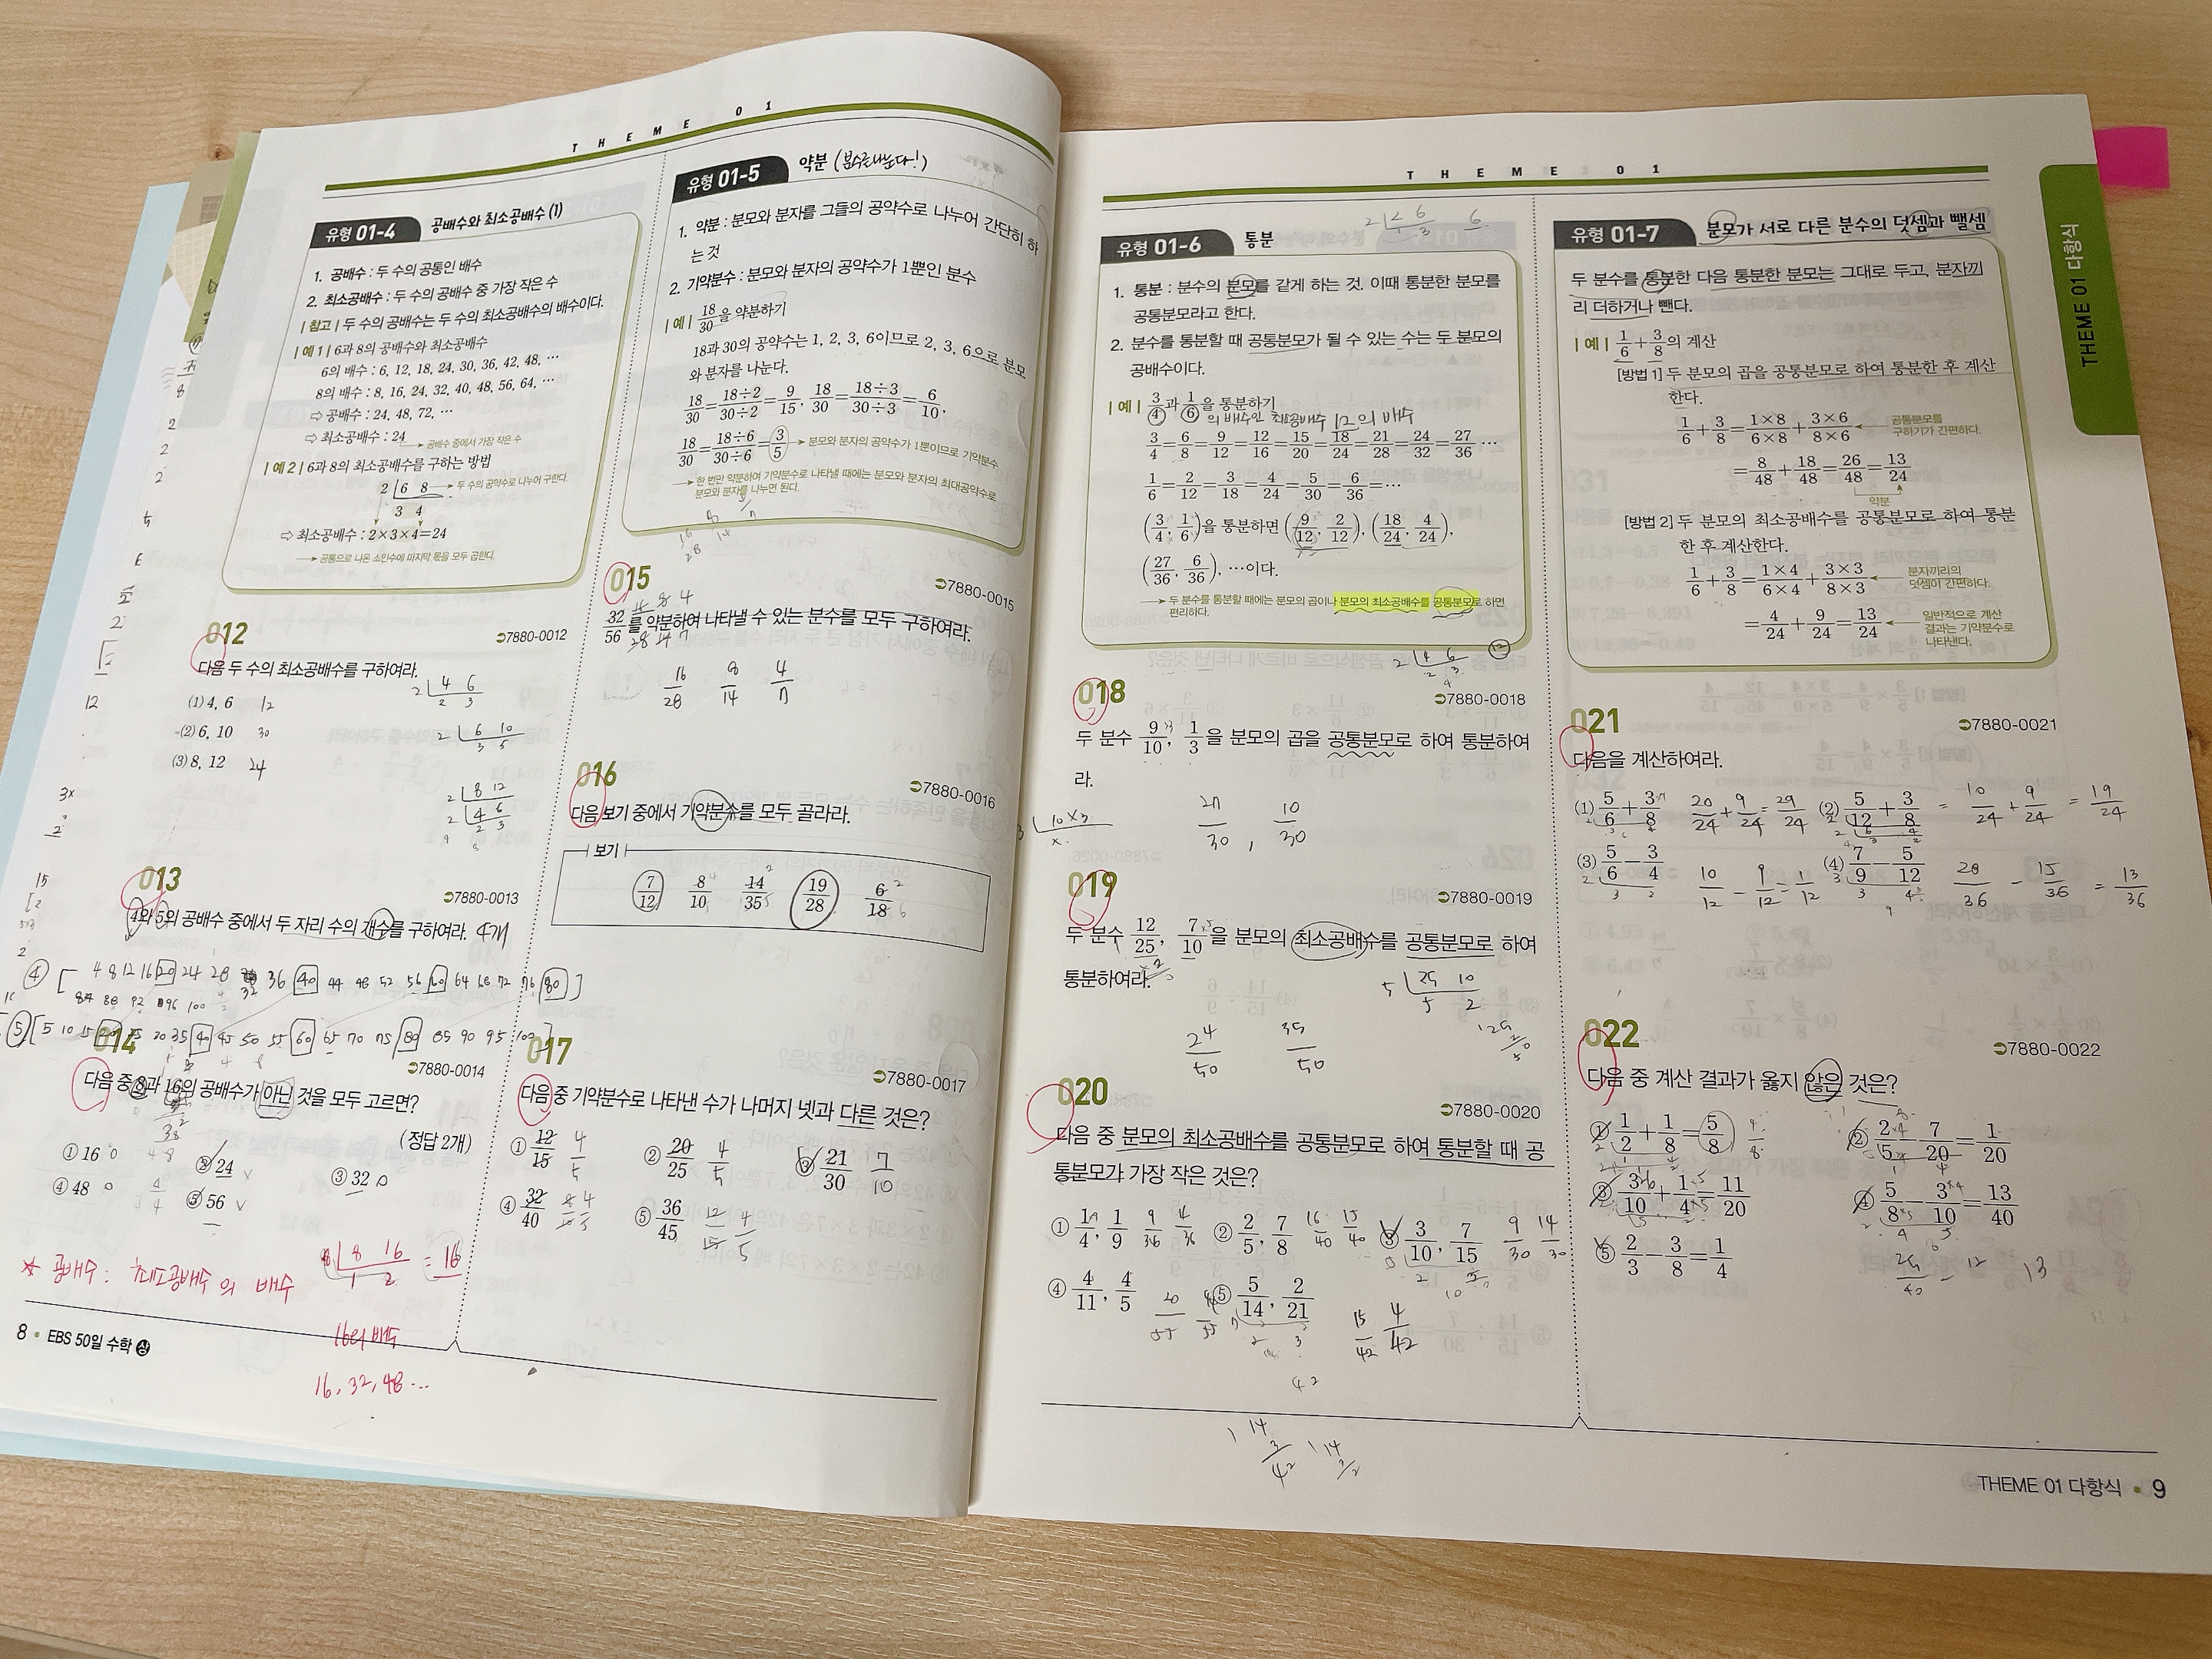 THEME 01
유형 01-4 공배수와 최소공배수 (1)
1. 공배수 : 두 수의 공통인 배수
2. 최소공배수 : 두 수의 공배수 중 가장 작은 수
|참고| 두 수의 공배수는 두 수의 최소공배수의 배수이다.
|예 1| 6과 8의 공배수와 최소공배수
6의 배수 : 6, 12, 18, 24, 30, 36, 42, 48, …
8의 배수 : 8, 16, 24, 32, 40, 48, 56, 64, …
⇨ 공배수 : 24, 48, 72, …
⇨ 최소공배수 : 24
→ 공배수 중에서 가장 작은 수
|예 2| 6과 8의 최소공배수를 구하는 방법
2 6 8 → 두 수의 공약수로 나누어 구한다.
3 4
⇨ 최소공배수 : 2×3×4=24
→ 공통으로 나온 소인수에 마지막 몫을 모두 곱한다.
012 7880-0012
다음 두 수의 최소공배수를 구하여라.
2 4 6
2 3
(1) 4, 6 12
(2) 6, 10 30
2 6 10
3 5
(3) 8, 12 24
2 8 12
2 4 6
2 3
013 7880-0013
4와 5의 공배수 중에서 두 자리 수의 개수를 구하여라. 4개
④ [ 4 8 12 16 20 24 28 32 36 40 44 48 52 56 60 64 68 72 76 80 ]
84 88 92 96 100
⑤ [ 5 10 15 20 25 30 35 40 45 50 55 60 65 70 75 80 85 90 95 100 ]
014 7880-0014
다음 중 8과 16의 공배수가 아닌 것을 모두 고르면?
(정답 2개)
① 16 ② 24 ③ 32
④ 48 ⑤ 56
* 공배수 : 최소공배수의 배수
8 8 16 = 16
1 2
16의 배수
16, 32, 48 …
8 • EBS 50일 수학 상
유형 01-5 약분 (분수로 나눈다!)
1. 약분 : 분모와 분자를 그들의 공약수로 나누어 간단히 하
는 것
2. 기약분수 : 분모와 분자의 공약수가 1뿐인 분수
|예| 18/30을 약분하기
18과 30의 공약수는 1, 2, 3, 6이므로 2, 3, 6으로 분모
와 분자를 나눈다.
18/30=18÷2/30÷2=9/15, 18/30=18÷3/30÷3=6/10,
18/30=18÷6/30÷6=3/5 → 분모와 분자의 공약수가 1뿐이므로 기약분수
→ 한 번만 약분하여 기약분수로 나타낼 때에는 분모와 분자의 최대공약수로
분모와 분자를 나누면 된다.
015 7880-0015
32/56를 약분하여 나타낼 수 있는 분수를 모두 구하여라.
16/28 8/14 4/7
016 7880-0016
다음 보기 중에서 기약분수를 모두 골라라.
보기
7/12 8/10 14/35 19/28 6/18
017 7880-0017
다음 중 기약분수로 나타낸 수가 나머지 넷과 다른 것은?
① 12/15 4/5 ② 20/25 4/5 ③ 21/30 7/10
④ 32/40 8/10 4/5 ⑤ 36/45 12/15 4/5
THEME 01
유형 01-6 통분
1. 통분 : 분수의 분모를 같게 하는 것. 이때 통분한 분모를
공통분모라고 한다.
2. 분수를 통분할 때 공통분모가 될 수 있는 수는 두 분모의
공배수이다.
|예| 3/4과 1/6을 통분하기
의 배수인 최소공배수 12의 배수
3/4=6/8=9/12=12/16=15/20=18/24=21/28=24/32=27/36 …
1/6=2/12=3/18=4/24=5/30=6/36=…
(3/4, 1/6)을 통분하면 (9/12, 2/12), (18/24, 4/24),
(27/36, 6/36), …이다.
→ 두 분수를 통분할 때에는 분모의 곱이나 분모의 최소공배수를 공통분모로 하면
편리하다.
2 4 6 ⑫
2 3
018 7880-0018
두 분수 9/10, 1/3을 분모의 곱을 공통분모로 하여 통분하여
라.
27/30, 10/30
019 7880-0019
두 분수 12/25, 7/10을 분모의 최소공배수를 공통분모로 하여
통분하여라.
5 25 10
5 2
24/50 35/50
020 7880-0020
다음 중 분모의 최소공배수를 공통분모로 하여 통분할 때 공
통분모가 가장 작은 것은?
① 1/4, 1/9 9/36 4/36 ② 2/5, 7/8 16/40 15/40 ③ 3/10, 7/15 9/30 14/30
④ 4/11, 4/5 20/55 ⑤ 5/14, 2/21 15/42 4/42
유형 01-7 분모가 서로 다른 분수의 덧셈과 뺄셈
두 분수를 통분한 다음 통분한 분모는 그대로 두고, 분자끼
리 더하거나 뺀다.
|예| 1/6+3/8의 계산
[방법 1] 두 분모의 곱을 공통분모로 하여 통분한 후 계산
한다.
1/6+3/8=1×8/6×8+3×6/8×6 ← 공통분모를
구하기가 간편하다.
=8/48+18/48=26/48=13/24
약분
[방법 2] 두 분모의 최소공배수를 공통분모로 하여 통분
한 후 계산한다.
1/6+3/8=1×4/6×4+3×3/8×3 ← 분자끼리의
덧셈이 간편하다.
=4/24+9/24=13/24 ← 일반적으로 계산
결과는 기약분수로
나타낸다.
021 7880-0021
다음을 계산하여라.
(1) 5/6+3/8 20/24+9/24=29/24 (2) 5/12+3/8 = 10/24+9/24=19/24
(3) 5/6-3/4 10/12-9/12=1/12 (4) 7/9-5/12 28/36-15/36=13/36
022 7880-0022
다음 중 계산 결과가 옳지 않은 것은?
① 1/2+1/8=5/8 ② 2/5-7/20=1/20
③ 3/10+1/4=11/20 ④ 5/8-3/10=13/40
⑤ 2/3-3/8=1/4
THEME 01 다항식
THEME 01 다항식 • 9